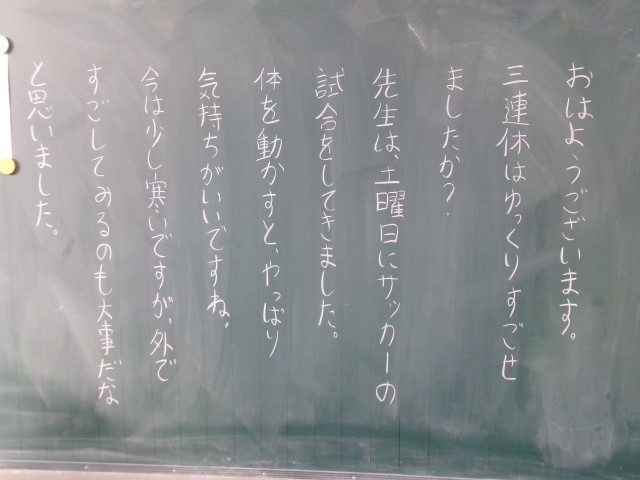 おはようございます。
三連休はゆっくりすごせ
ましたか?
先生は、土曜日にサッカーの
試合をしてきました。
体を動かすと、やっぱり
気持ちがいいですね。
今は少し寒いですが、外で
すごしてみるのも大事だな
と思いました。